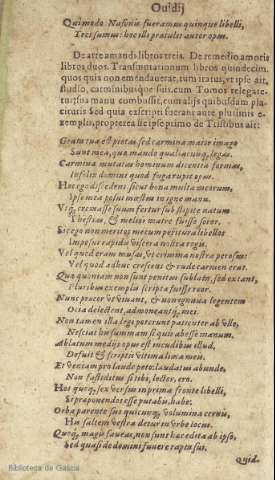 Ouidij
Qui modo Nasonis fueramus quinque libelli,
Tres sumus: hoc illi prætulit autor opus.
De arte amandi libros treis. De remedio amoris
libros duos. Transmutationum libros quindecim,
quos quia non emendauerat, tum iratus, vt ipse ait,
studio, carminibusque suis, cum Tomos relegaretur,
sua manu combussit, cum alijs quibusdam
sed quia exscripti fuerant ante pluribus
exemplis, propterea ille ipse primo de Tristibus ait:
Grata tua est pietas, sed carmina maior imago
Sunt mea, quæ mando qualiacunq; legas.
Carmina mutatas hominum dicentia formas,
Infelix domini quod fuga rupit opus.
Hæc ego discedens sicut bona multa meorum,
Ipse mea posui mœstus in igne manu.
Vtq; cremasse suum fertur sub stipite natum
Thestias, & melior matre fuisse soror,
Sic ego non meritos mecum peritura libellos
Imposui rapidis viscera nostra rogis.
Vel quod eram musas, vt crimina nostra perosus:
Vel quod adhuc crescens & rude carmen erat.
Quæ quoniam non sunt penitus sublata, sed extant,
Pluribus exemplis scripta fuisse reor.
Nunc precor vt viuant, & non ignaua legentem
Otia delectent, admoneantq; mei.
Non tamen illa legi poterunt patienter ab vllo,
Nesciat his summam si quis abesse manum.
Ablatum medijs opus est incudibus illud,
Defuit & scriptis vltima lima meis.
Et veniam pro laude peto: laudatus abunde,
Non fastiditus si tibi, lector, ero.
Hos quoq; sex versus in prima fronte libelli,
Si præponendos esse putabis, habe.
Orba parente suo quicunq; volumina cernis,
His saltem vestra detur in vrbe locus.
Quoq; magis faueas, non sunt hæc edita ab ipso,
Sed quasi de domini funere rapta sui.
Quid.
Biblioteca de Galicia